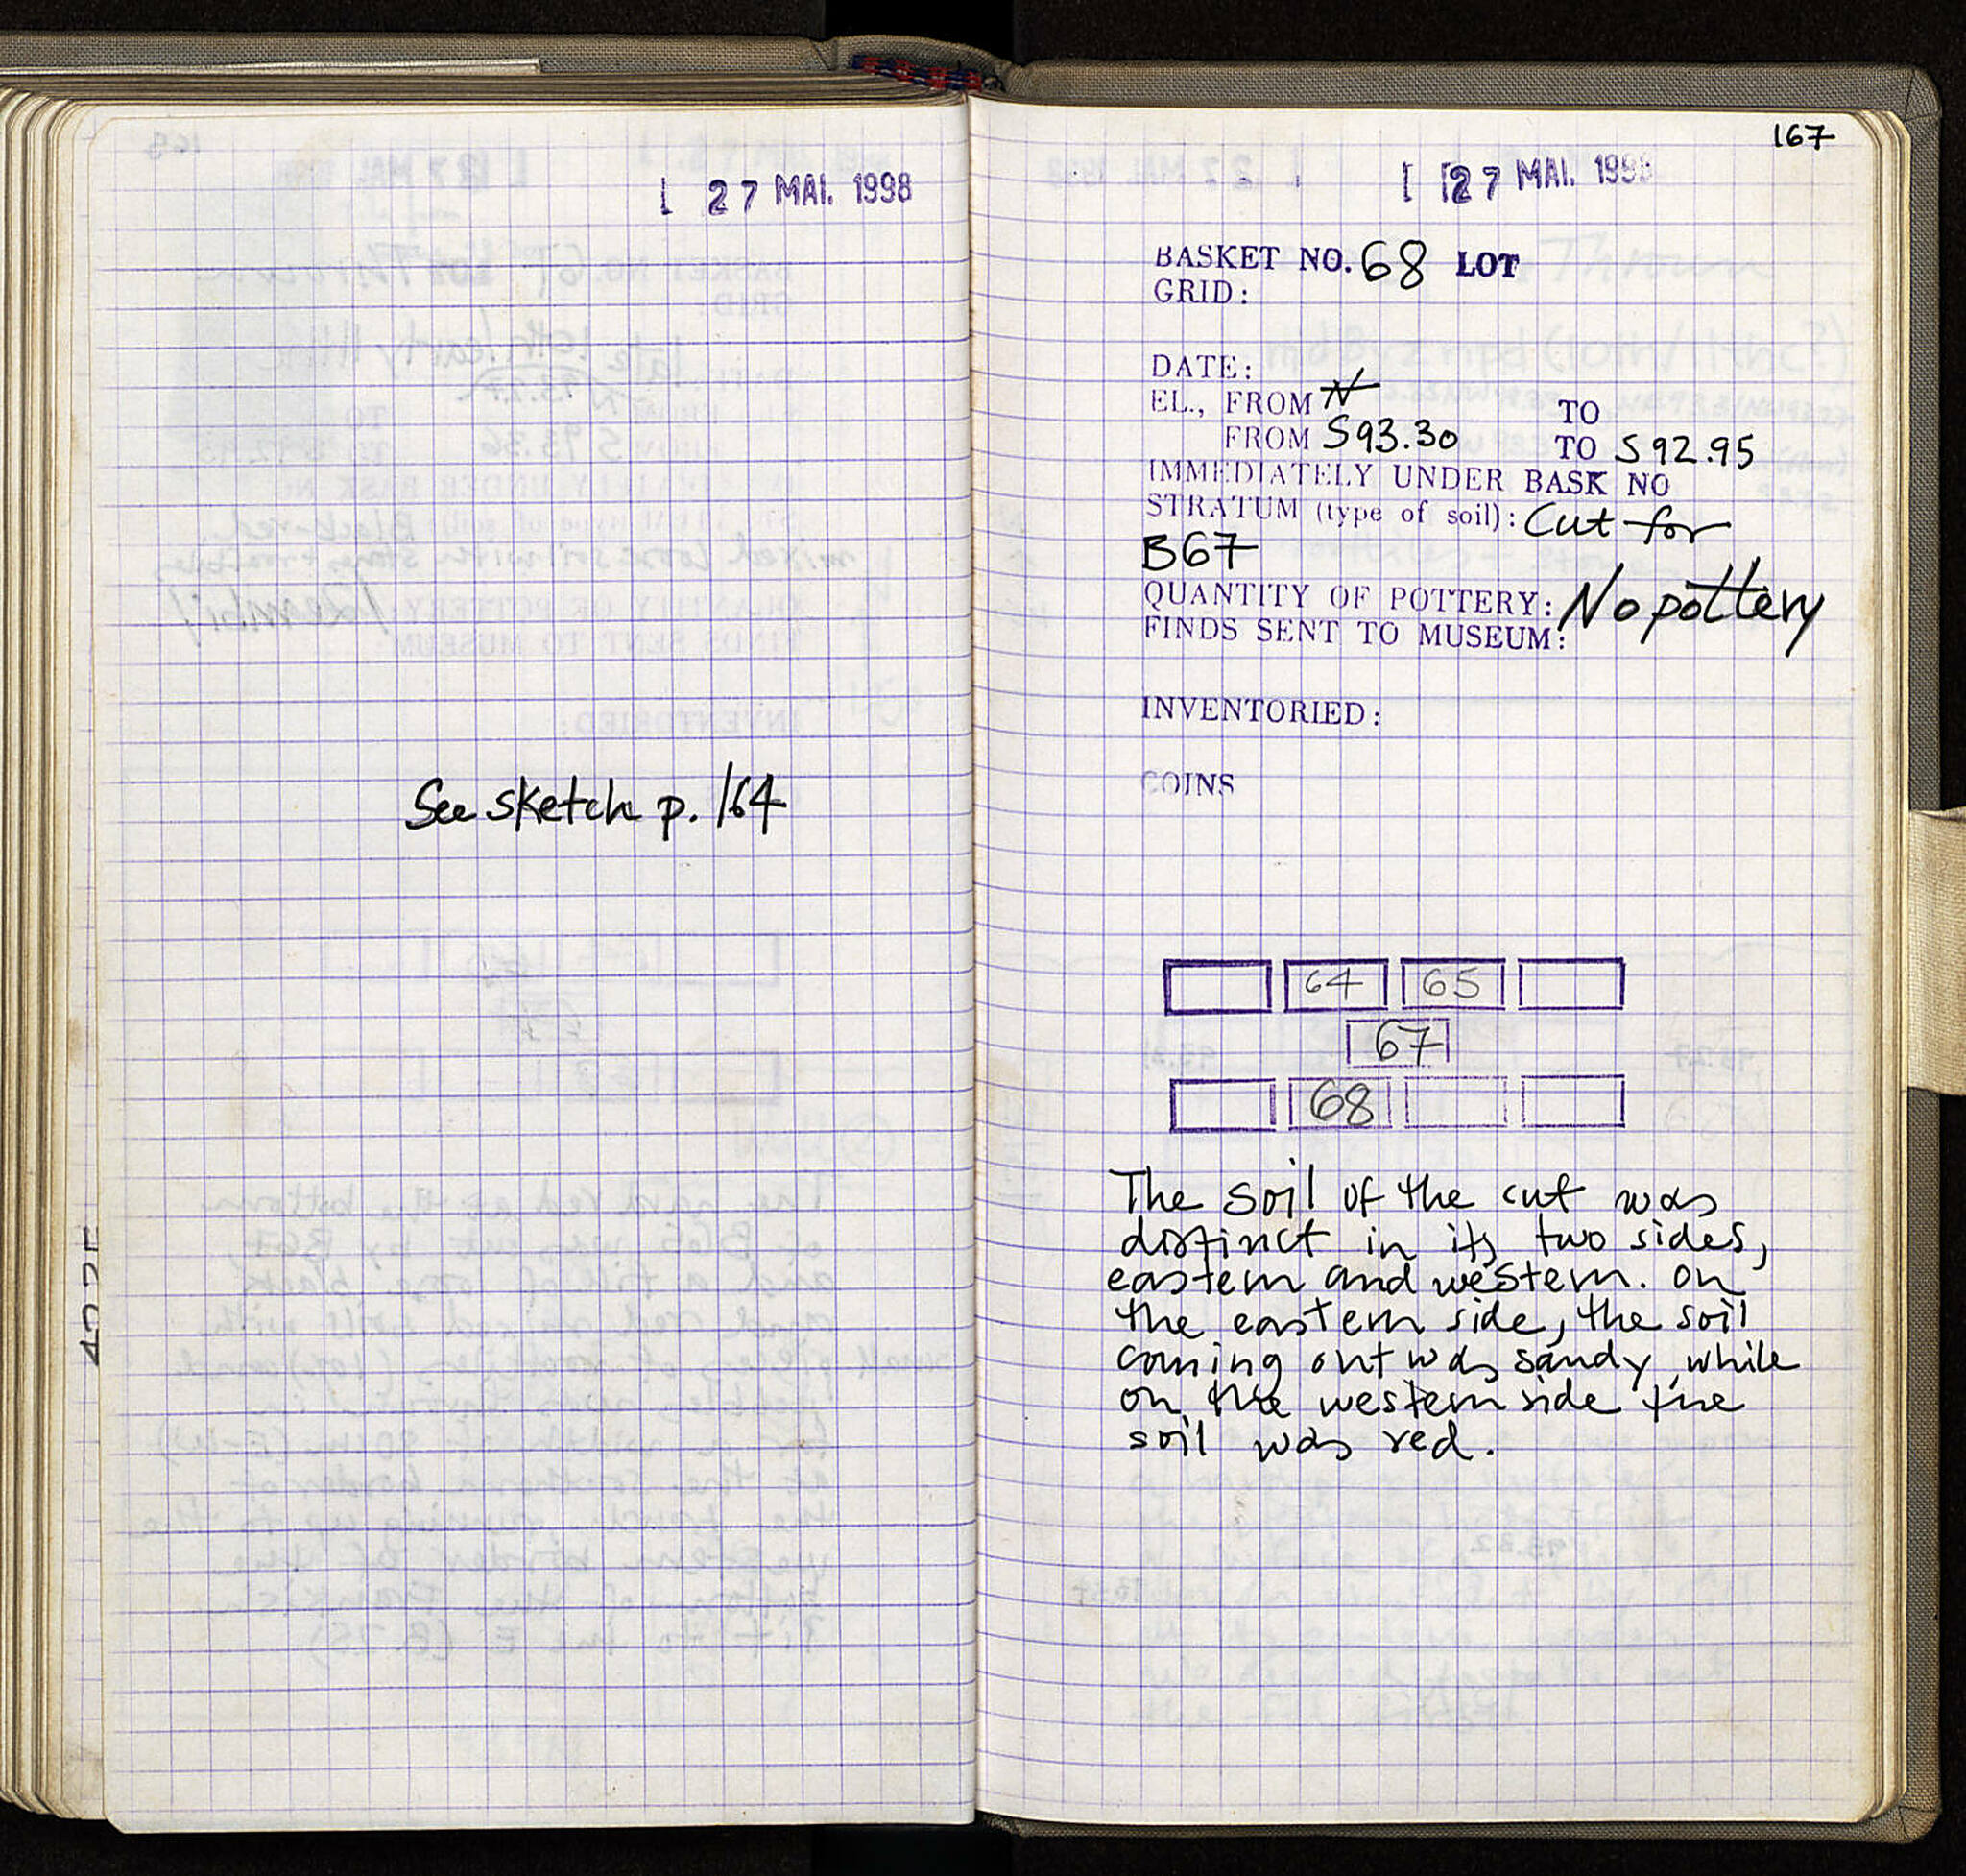 27 MAI. 1998
See sketch p. 164
167
27 MAI. 1998
BASKET NO. 68 LOT
GRID:
DATE:
EL., FROM N TO
FROM S93.30 TO S92.95
IMMEDIATELY UNDER BASK NO
STRATUM (type of soil): Cut for
B67
QUANTITY OF POTTERY: No pottery
FINDS SENT TO MUSEUM:
INVENTORIED:
COINS
64 65
67
68
The soil of the cut was
distinct in its two sides,
eastern and western. On
the eastern side, the soil
coming out was sandy, while
on the western side the
soil was red.